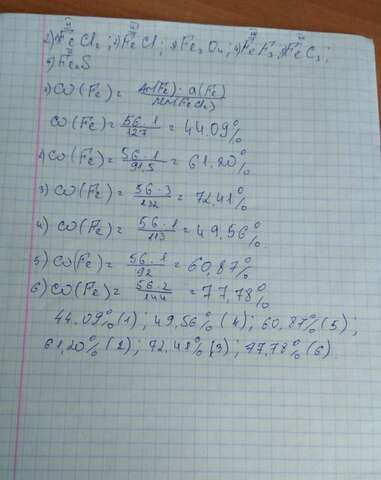 2) FeCl₂; 2) FeCl; 3) Fe₃O₄; 4) FeF₃; 5) FeC₃;
6) Fe₂S
1) ω(Fe) = Ar(Fe)·a(Fe) / Mr(FeCl₂)
ω(Fe) = 56·1 / 127 = 44.09%
2) ω(Fe) = 56·1 / 91,5 = 61.20%
3) ω(Fe) = 56·3 / 232 = 72,41%
4) ω(Fe) = 56·1 / 113 = 49,56%
5) ω(Fe) = 56·1 / 92 = 60,87%
6) ω(Fe) = 56·2 / 144 = 77,78%
44.09% (1); 49,56% (4); 60,87% (5);
61,20% (2); 72,41% (3); 77,78% (6).